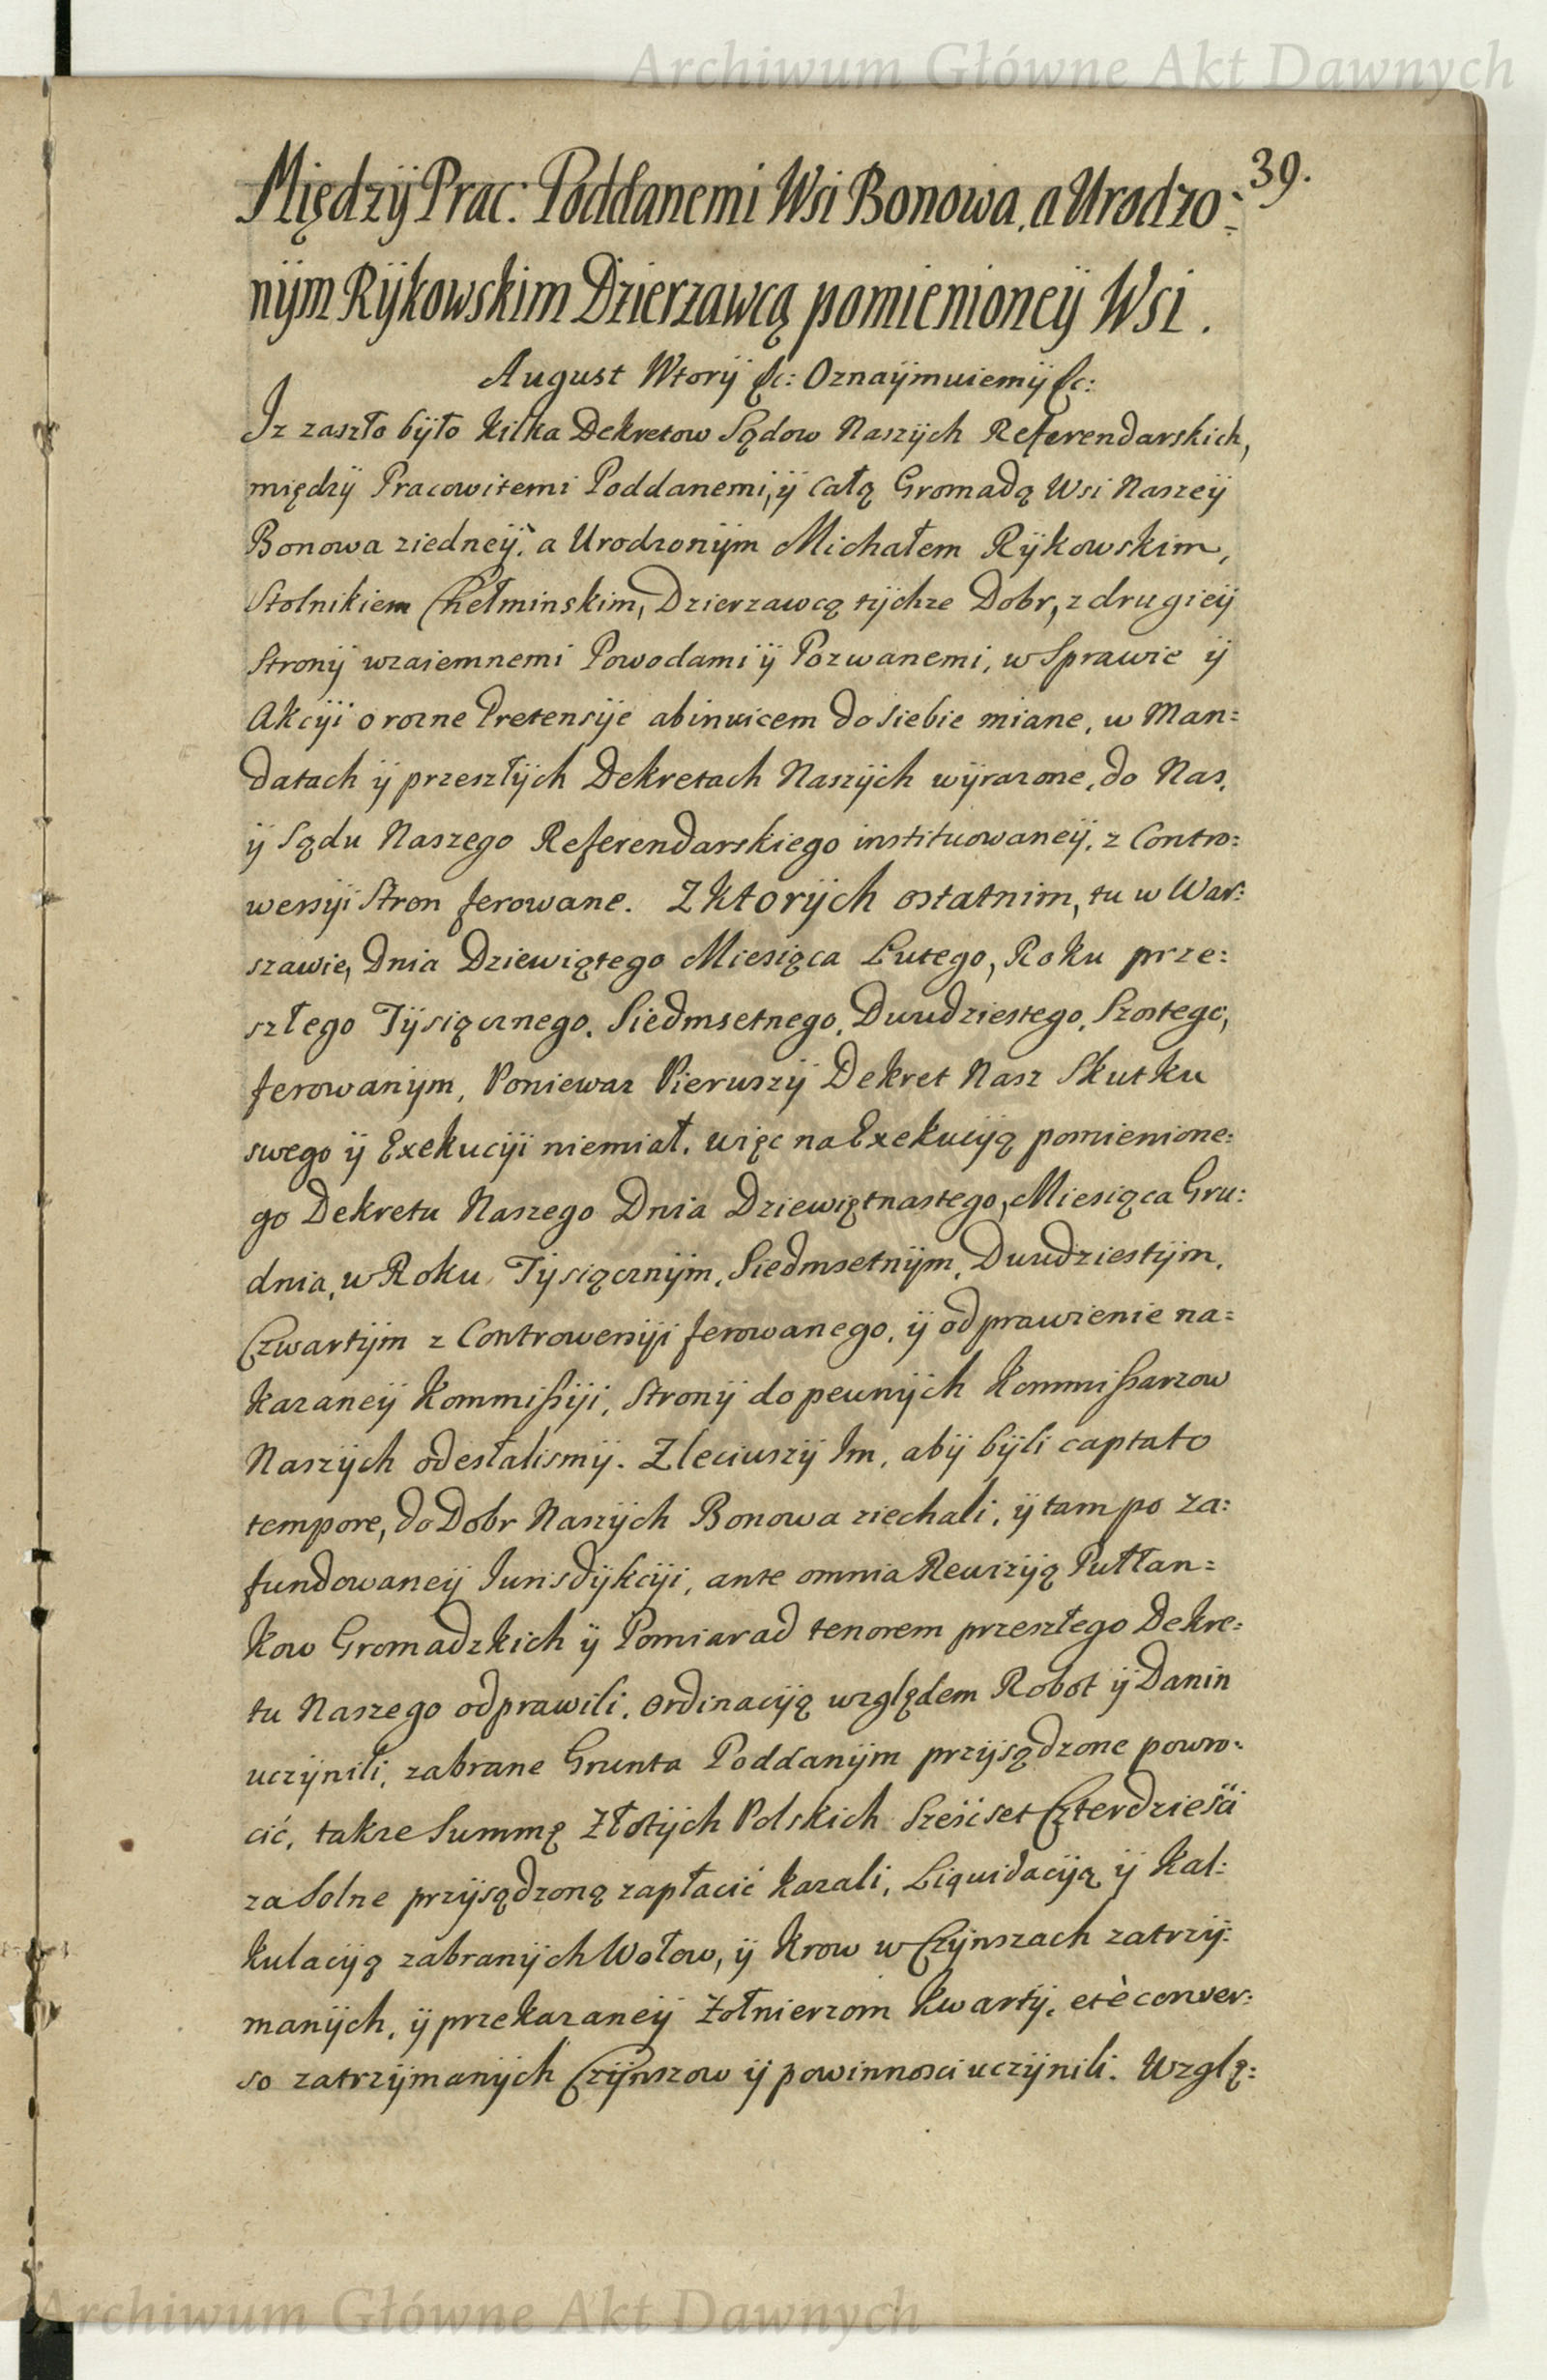 Archiwum Główne Akt Dawnych
39.
Międzÿ Prac: Poddanemi Wsi Bonowa, a Urodzo=
nÿm Rÿkowskim Dzierzawcą pomienioneÿ Wsi.
August Wtorÿ &c: Oznaÿmuiemÿ &c:
Iz zaszło bÿło kilka Dekretow Sądow Naszÿch Referendarskich,
międzÿ Pracowitemi Poddanemi, ÿ całą Gromadą Wsi Naszeÿ
Bonowa ziedneÿ, a Urodzonÿm Michałem Rÿkowskim,
Stolnikiem Chełminskim, Dzierzawcą tÿchze Dobr, z drugieÿ
Stronÿ wzaiemnemi Powodami ÿ Pozwanemi, w Sprawie ÿ
Akcÿi o rozne Pretensÿe abinuicem do siebie miane, w Man=
datach ÿ przeszłÿch Dekretach Naszÿch wÿrazone, do Nas,
ÿ Sądu Naszego Referendarskiego instituowaneÿ, z Contro=
wersÿi Stron ferowane. Z ktorÿch ostatnim, tu w War=
szawie, Dnia Dziewiątego Miesiąca Lutego, Roku prze=
szłego Tÿsiącznego, Siedmsetnego, Dwudziestego, Szostego,
ferowanÿm, Poniewaz Pierwszÿ Dekret Nasz Skutku
swego ÿ Exekucÿi niemiał, więc na Exekucÿą pomienione=
go Dekretu Naszego Dnia Dziewiętnastego, Miesiąca Gru=
dnia, w Roku Tÿsiącznÿm, Siedmsetnÿm, Dwudziestÿm,
Czwartÿm z Controwersÿi ferowanego, ÿ odprawienie na=
kazaneÿ Kommissÿi, Stronÿ do pewnÿch Kommissarzow
Naszÿch odesłalismÿ. Zleciwszÿ Im, abÿ bÿli captato
tempore, do Dobr Naszÿch Bonowa ziechali, ÿ tam po za=
fundowaneÿ Iurisdÿkcÿi, ante omnia Rewizÿą Pułłan=
kow Gromadzkich ÿ Pomiar ad tenorem przeszłego Dekre=
tu Naszego odprawili, Ordinacÿą względem Robot ÿ Danin
uczÿnili, zabrane Grunta Poddanÿm przÿsądzone powro=
cić, takze Summę Złotÿch Polskich Sześćset Czterdzieści
za Solne przÿsądzoną zapłacić kazali, Liquidacÿą ÿ Kal=
kulacÿą zabranÿch Wołow, ÿ Krow w Czÿnszach zatrzÿ=
manÿch, ÿ przekazaneÿ Zołnierzom Kwartÿ, et è conver=
so zatrzÿmanÿch Czÿnszow ÿ powinnosci uczÿnili. Wzglę=
Archiwum Główne Akt Dawnych